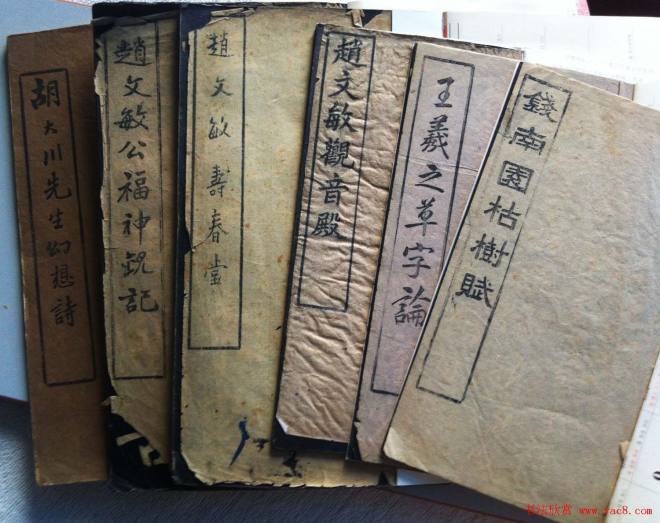 胡大川先生幻想詩
趙文敏公福神觀記
趙文敏壽春堂
趙文敏觀音殿
王羲之草字論
錢南園枯樹賦
书法欣赏 www.yac8.com